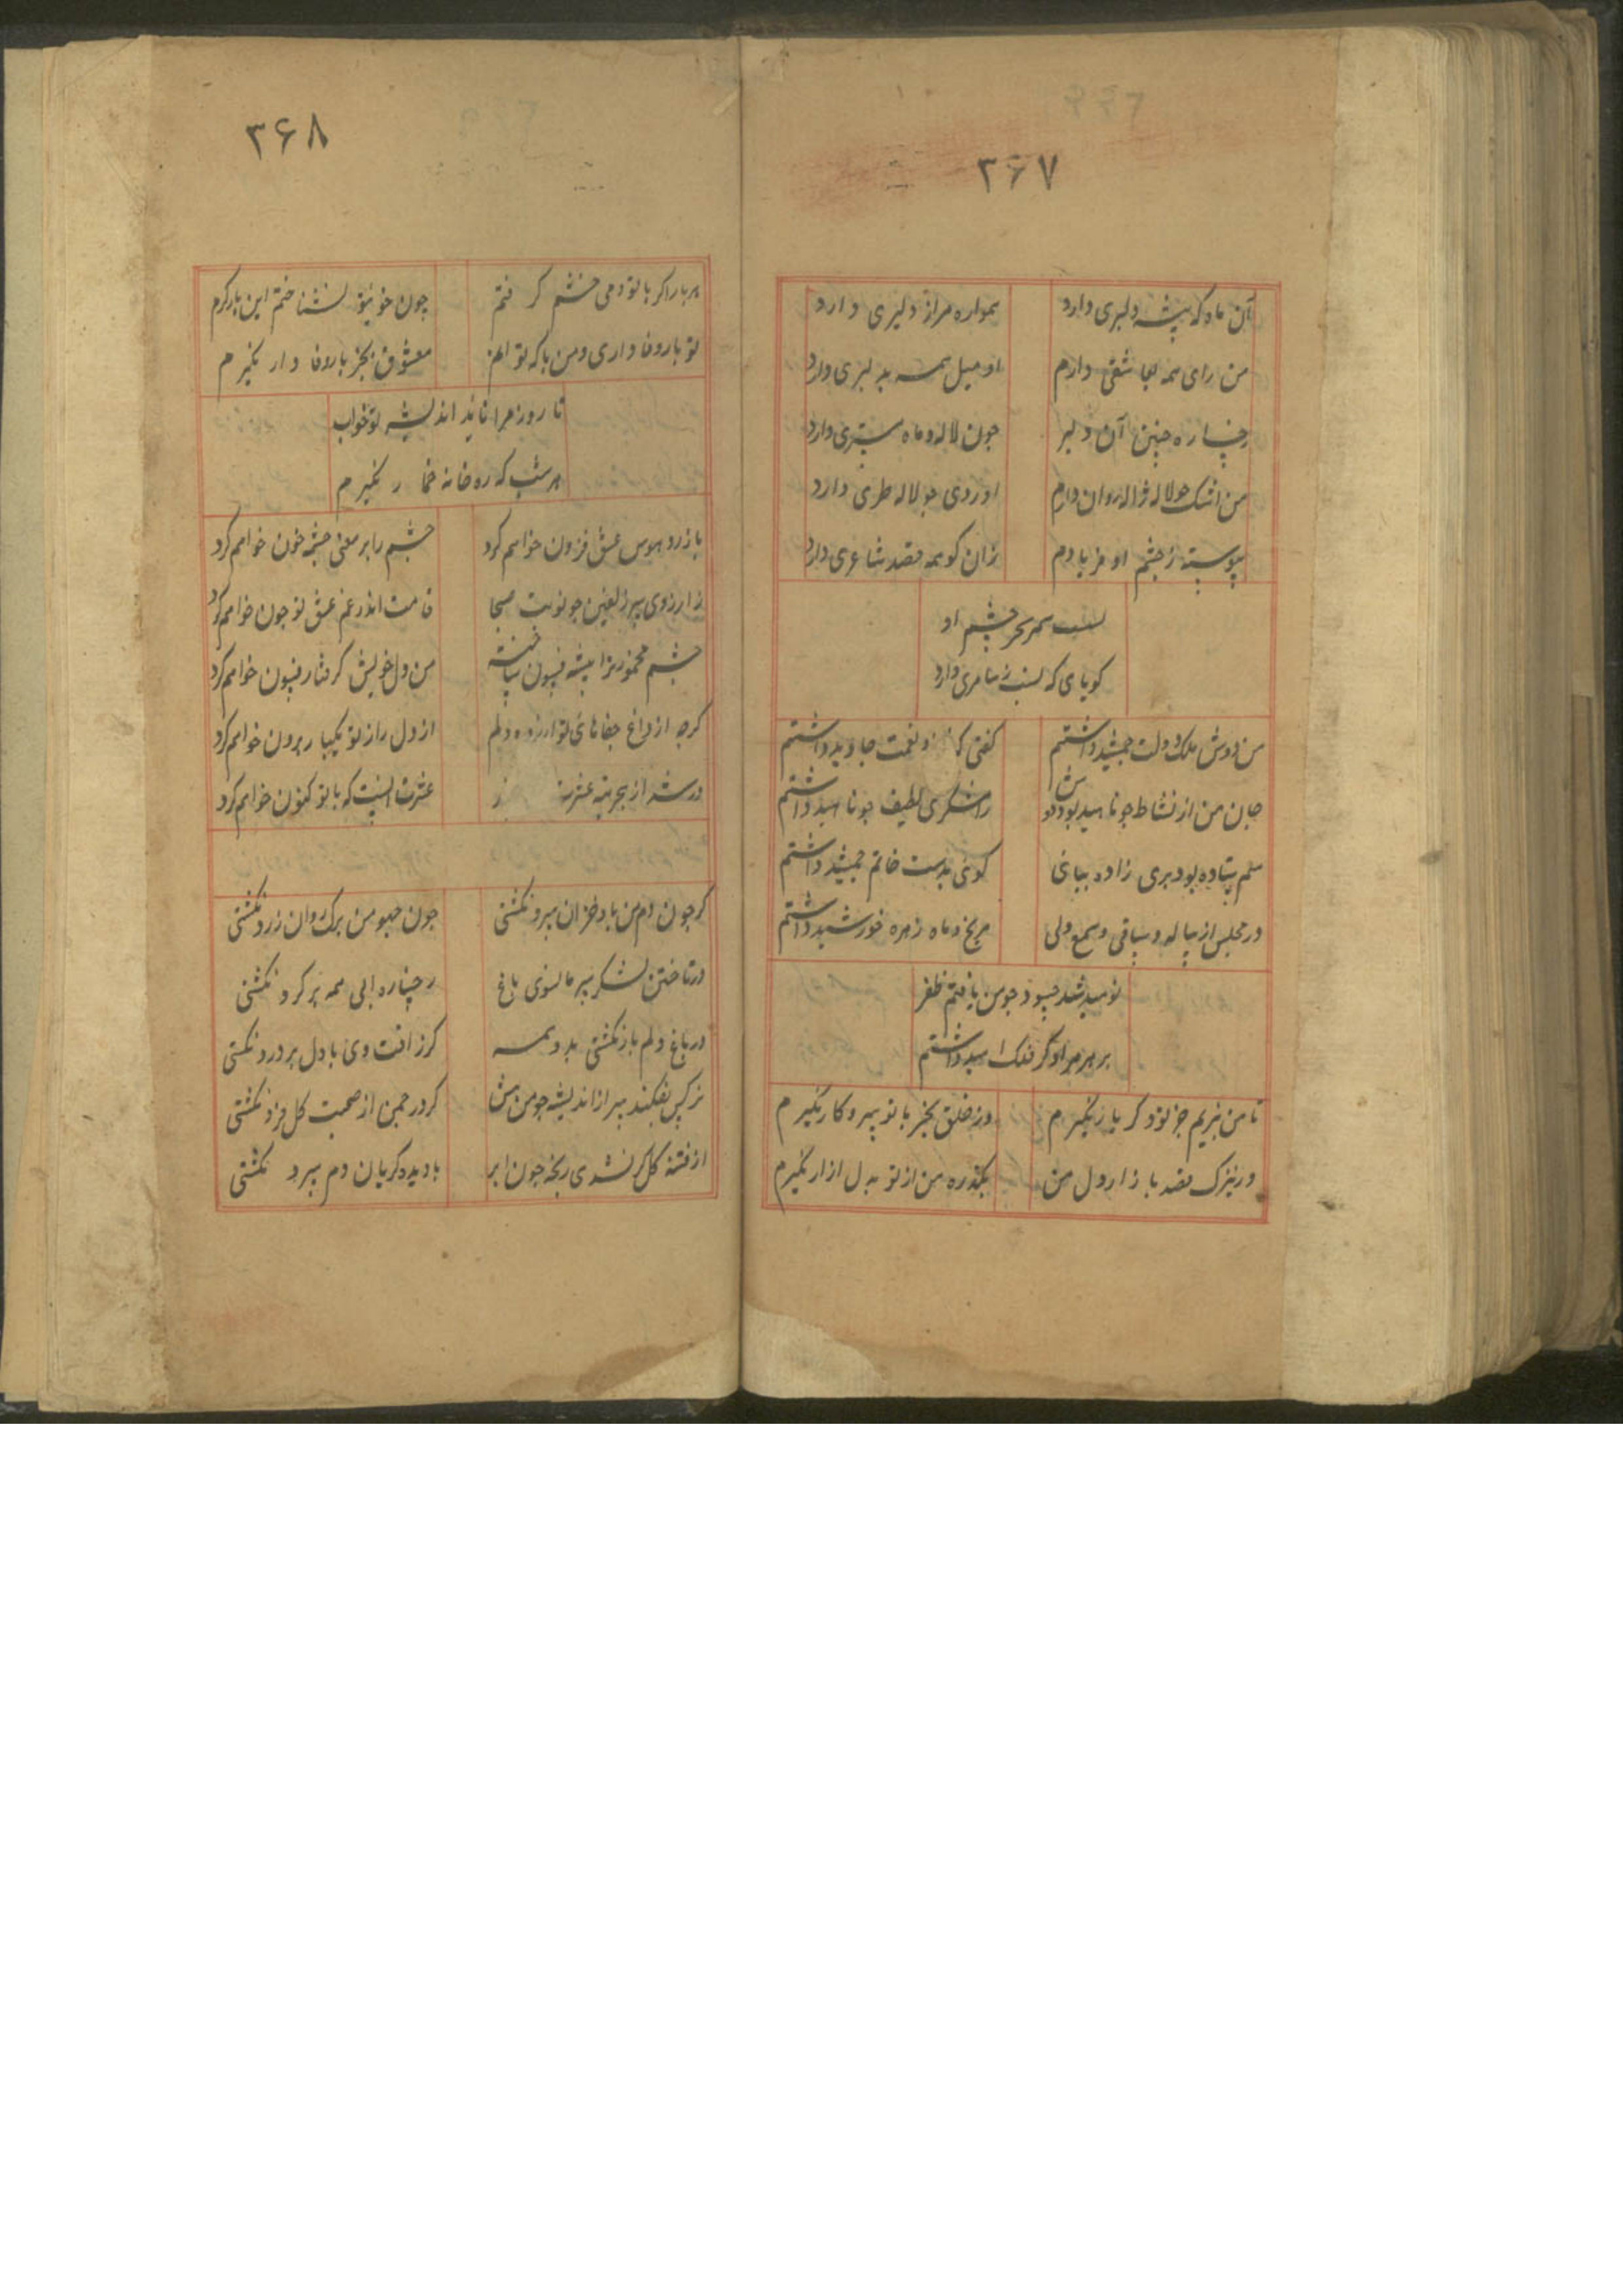 ۳۶۷
آن ماه که پیشه دلبری دارد همواره مرا ز دلبری دارد
من رای همه بعاشقی دارم او میل همه بدلبری دارد
رخساره چنین آن دلبر چون لاله و ماه مشتری دارد
من اشک چو لاله ژاله روان دارم او روی چو لاله طری دارد
پیوسته ز چشم او بفریادم زان کو همه قصد شاعری دارد
نسبت سحر چشم او
گویای که نسبت ز سامری دارد
من دوش ملک و دولت جمشید داشتم گفتی که نعمت جاوید داشتم
جان من از نشاط چو ناهید بود رامشگری لطیف چو ناهید داشتم
ستاده بود پری زاده بپای گوئی بدست خاتم جمشید داشتم
در مجلس از پیاله و ساقی و شمع ولی مریخ و ماه زهره خورشید داشتم
نومید شد حسود چو من یافتم ظفر
بر هر مراد کز فلک امید داشتم
تا من بزیم جز تو دگر یار نگیرم وز خلق بجز با تو سر و کار نگیرم
ور ترک قصد بازار دل من بگذره من از تو بدل ازار نگیرم
۳۶۸
هر بار اگر با تو دمی خشم گرفتم چون خوی تو نشناختم این بار گرم
تو یار وفاداری و من با که تو معشوق بجز یار وفادار نگیرم
تا روز مرا ناید اندیشه تو خواب
هر شب که ره خانه خمار نگیرم
باز رو هوس عشق فزون خواهم کرد چشم را بر معنی چشمه خون خواهم کرد
ز ارزوی سر زلفین چو نونت صنما قامت اندر غم عشق تو چون خواهم کرد
چشم مخمور ترا پیشه فسون ساخته من دل خویش گرفتار فسون خواهم کرد
گرچه از داغ جفاهای تو ازرده دلم از دل راز تو یکباره برون خواهم کرد
ور شد از عشرت عشرت اینست که با تو کنون خواهم کرد
گر چون دم من باد خزان سرد نگشتی چون چهره من برگ رزان زرد نگشتی
در تاختن لشکر سرما سوی باغ رخساره ابی همه پر گرد نگشتی
در باغ دلم باز نگشتی بدو همه گرز افت وی با دل پر درد نگشتی
نرگس نفکند سر از اندیشه چو من پیش گر در چمن از صحبت گل فرد نگشتی
از فتنه گل گر نشدی رنجه چون ابر با دیده گریان دم سرد نگشتی